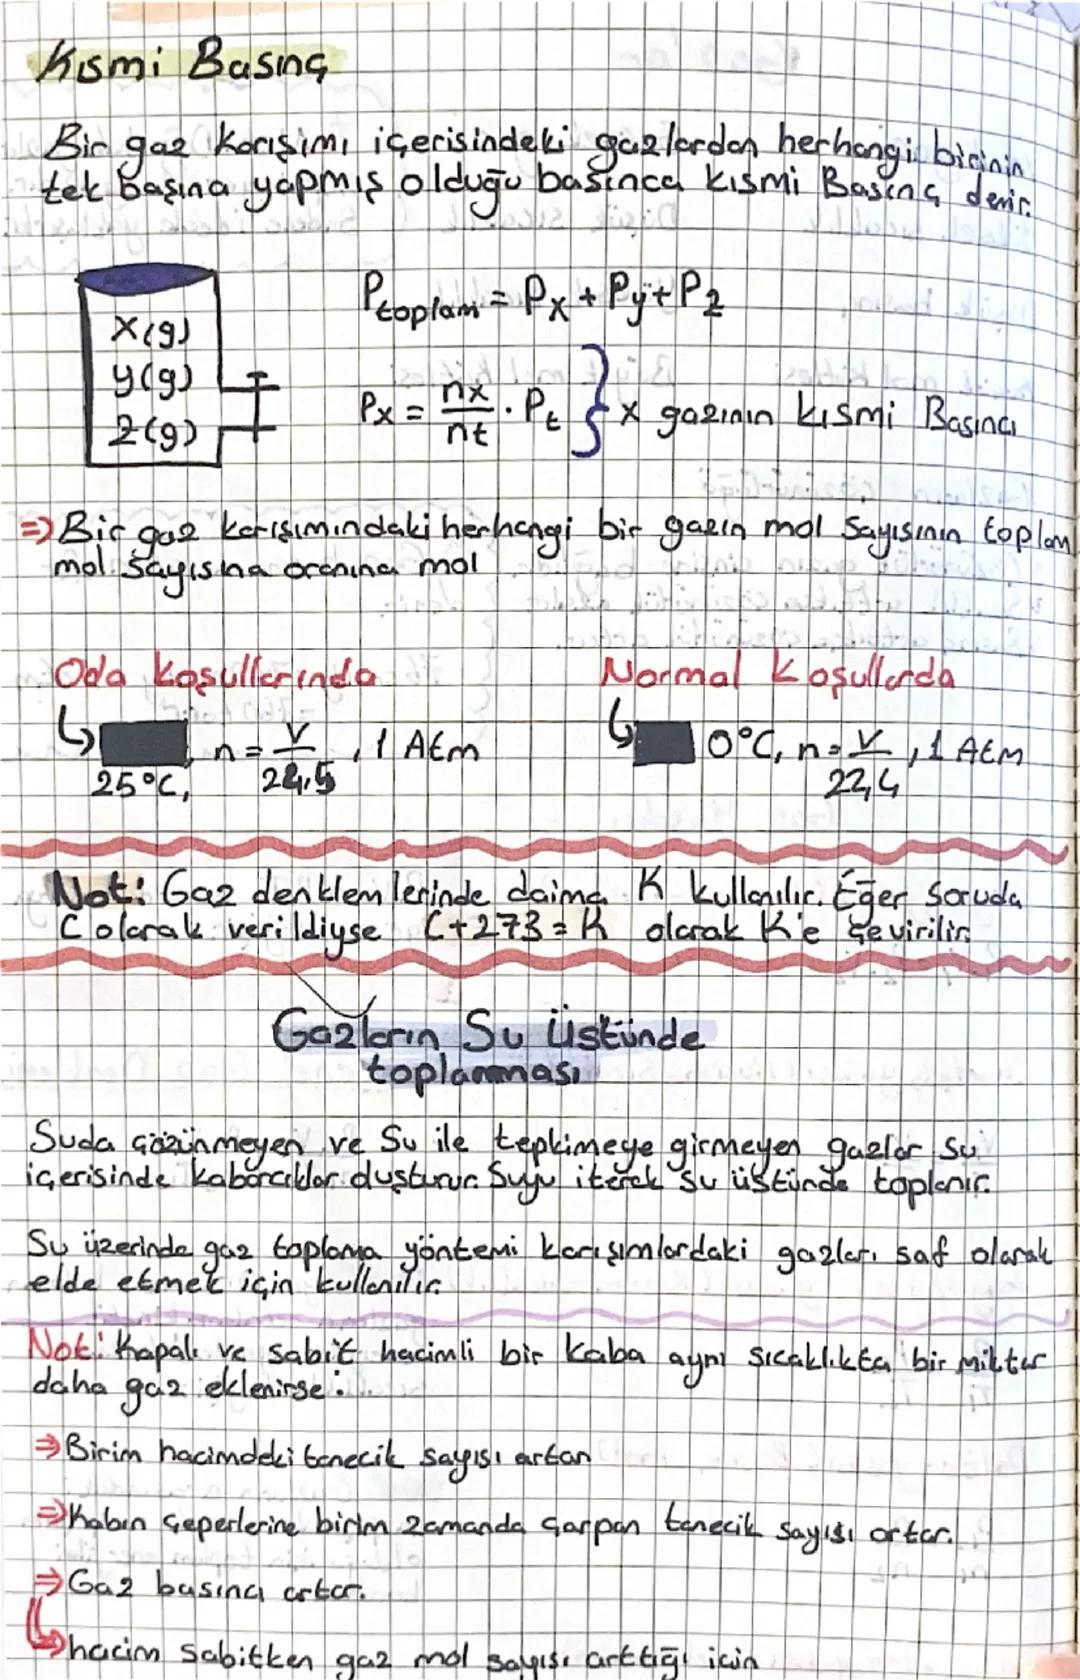 Kısmi Basınç
Bir gaz karışımı içerisindeki gazlardan herhangi birinin
tek başına yapmış olduğu basınca kısmi Basınç denir.
X(g)
y(g)
z(g)
Ptoplam = Px + Py + Pz
Px = nx/nt . Pt } x gazının kısmi Basıncı
=> Bir gaz karışımındaki herhangi bir gazın mol sayısının toplam
mol sayısına oranına mol
Oda koşullarında
25°C, n = V/24,5 , 1 Atm
Normal koşullarda
0°C, n = V/22,4 , 1 Atm
Not: Gaz denklemlerinde daima K kullanılır. Eğer soruda
C olarak verildiyse C+273=K olarak K'e çevirilir.
Gazların Su üstünde
toplanması
Suda çözünmeyen ve Su ile tepkimeye girmeyen gazlar su
içerisinde kabarcıklar oluşturur. Suyu iterek su üstünde toplanır.
Su üzerinde gaz toplama yöntemi karışımlardaki gazları saf olarak
elde etmek için kullanılır.
Not: Kapalı ve sabit hacimli bir kaba aynı sıcaklıkta bir miktar
daha gaz eklenirse:
=> Birim hacimdeki tanecik sayısı artan
=> Kabın çeperlerine birim zamanda çarpan tanecik sayısı artar.
=> Gaz basıncı artar.
hacim sabitken gaz mol sayısı arttığı için